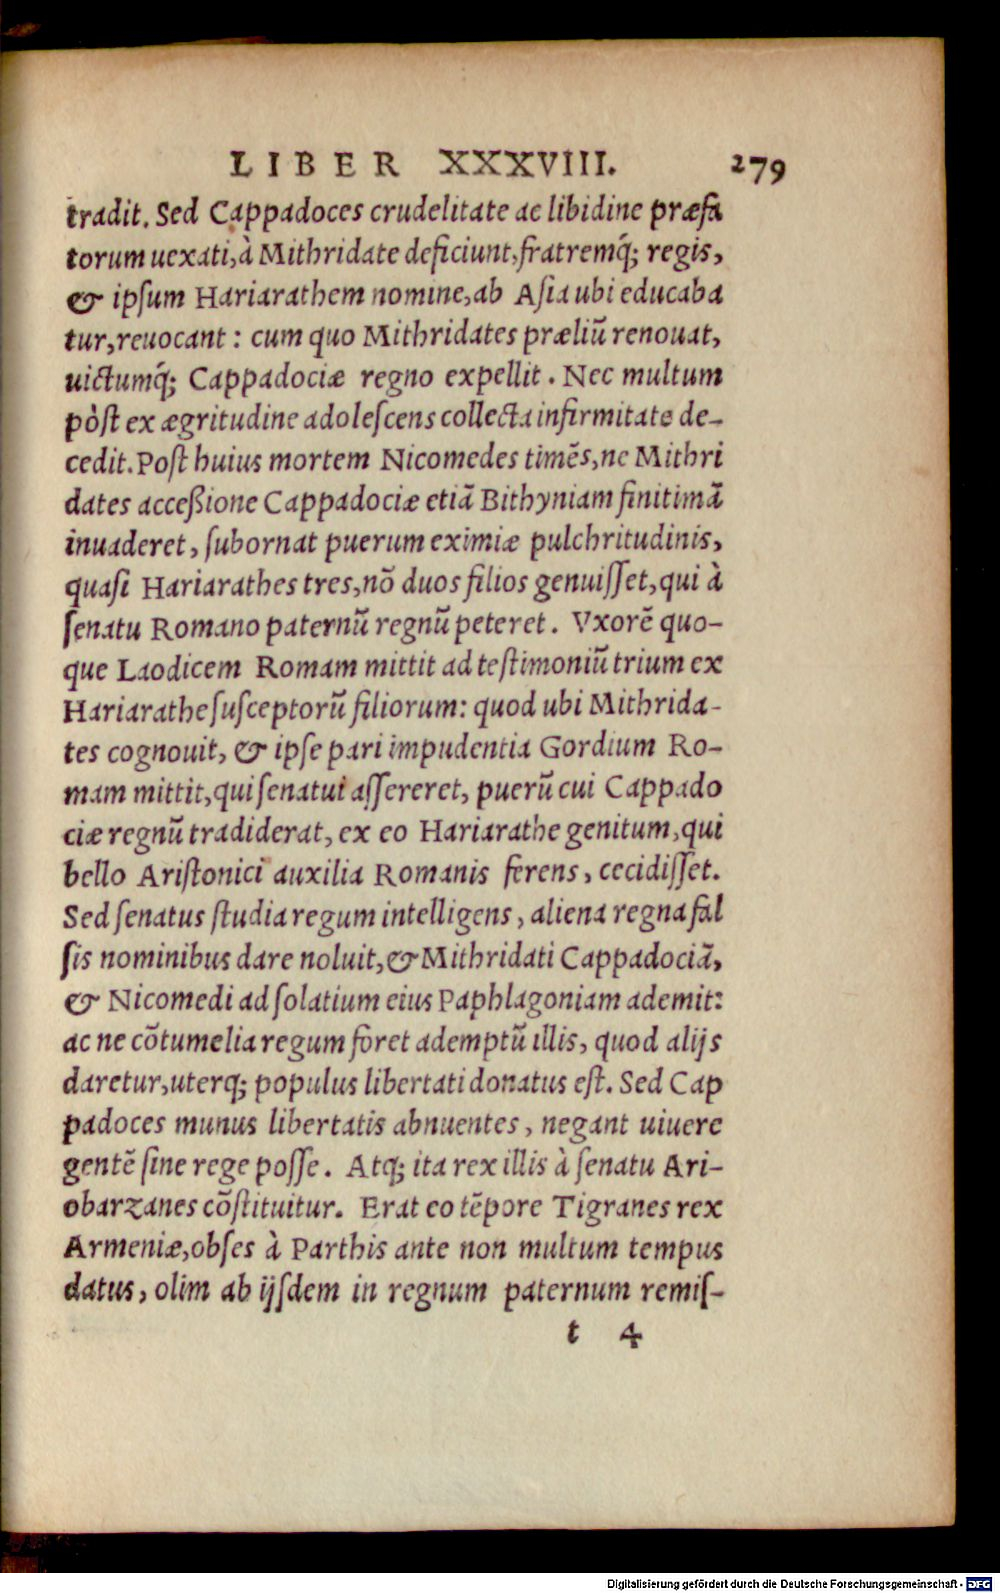 LIBER XXXVIII. 279
tradit. Sed Cappadoces crudelitate ac libidine præfa
torum uexati, à Mithridate deficiunt, fratremq́; regis,
& ipſum Hariarathem nomine, ab Aſia ubi educaba
tur, reuocant: cum quo Mithridates præliũ renouat,
uictumq́; Cappadociæ regno expellit. Nec multum
pòſt ex ægritudine adoleſcens collecta infirmitate de-
cedit. Poſt huius mortem Nicomedes timẽs, ne Mithri
dates acceßione Cappadociæ etiã Bithyniam finitimã
inuaderet, ſubornat puerum eximiæ pulchritudinis,
quaſi Hariarathes tres, nõ duos filios genuiſſet, qui à
ſenatu Romano paternũ regnũ peteret. Vxorẽ quo-
que Laodicem Romam mittit ad teſtimoniũ trium ex
Hariarathe ſuſceptorũ filiorum: quod ubi Mithrida-
tes cognouit, & ipſe pari impudentia Gordium Ro-
mam mittit, qui ſenatui aſſereret, puerũ cui Cappado
ciæ regnũ tradiderat, ex eo Hariarathe genitum, qui
bello Ariſtonici auxilia Romanis ferens, cecidiſſet.
Sed ſenatus ſtudia regum intelligens, aliena regna fal
ſis nominibus dare noluit, & Mithridati Cappadociã,
& Nicomedi ad ſolatium eius Paphlagoniam ademit:
ac ne cõtumelia regum foret ademptũ illis, quod alijs
daretur, uterq; populus libertati donatus eſt. Sed Cap
padoces munus libertatis abnuentes, negant uiuere
gentẽ ſine rege poſſe. Atq; ita rex illis à ſenatu Ari-
obarzanes cõſtituitur. Erat eo tẽpore Tigranes rex
Armeniæ, obſes à Parthis ante non multum tempus
datus, olim ab ijſdem in regnum paternum remiſ-
t 4
Digitalisierung gefördert durch die Deutsche Forschungsgemeinschaft - DFG